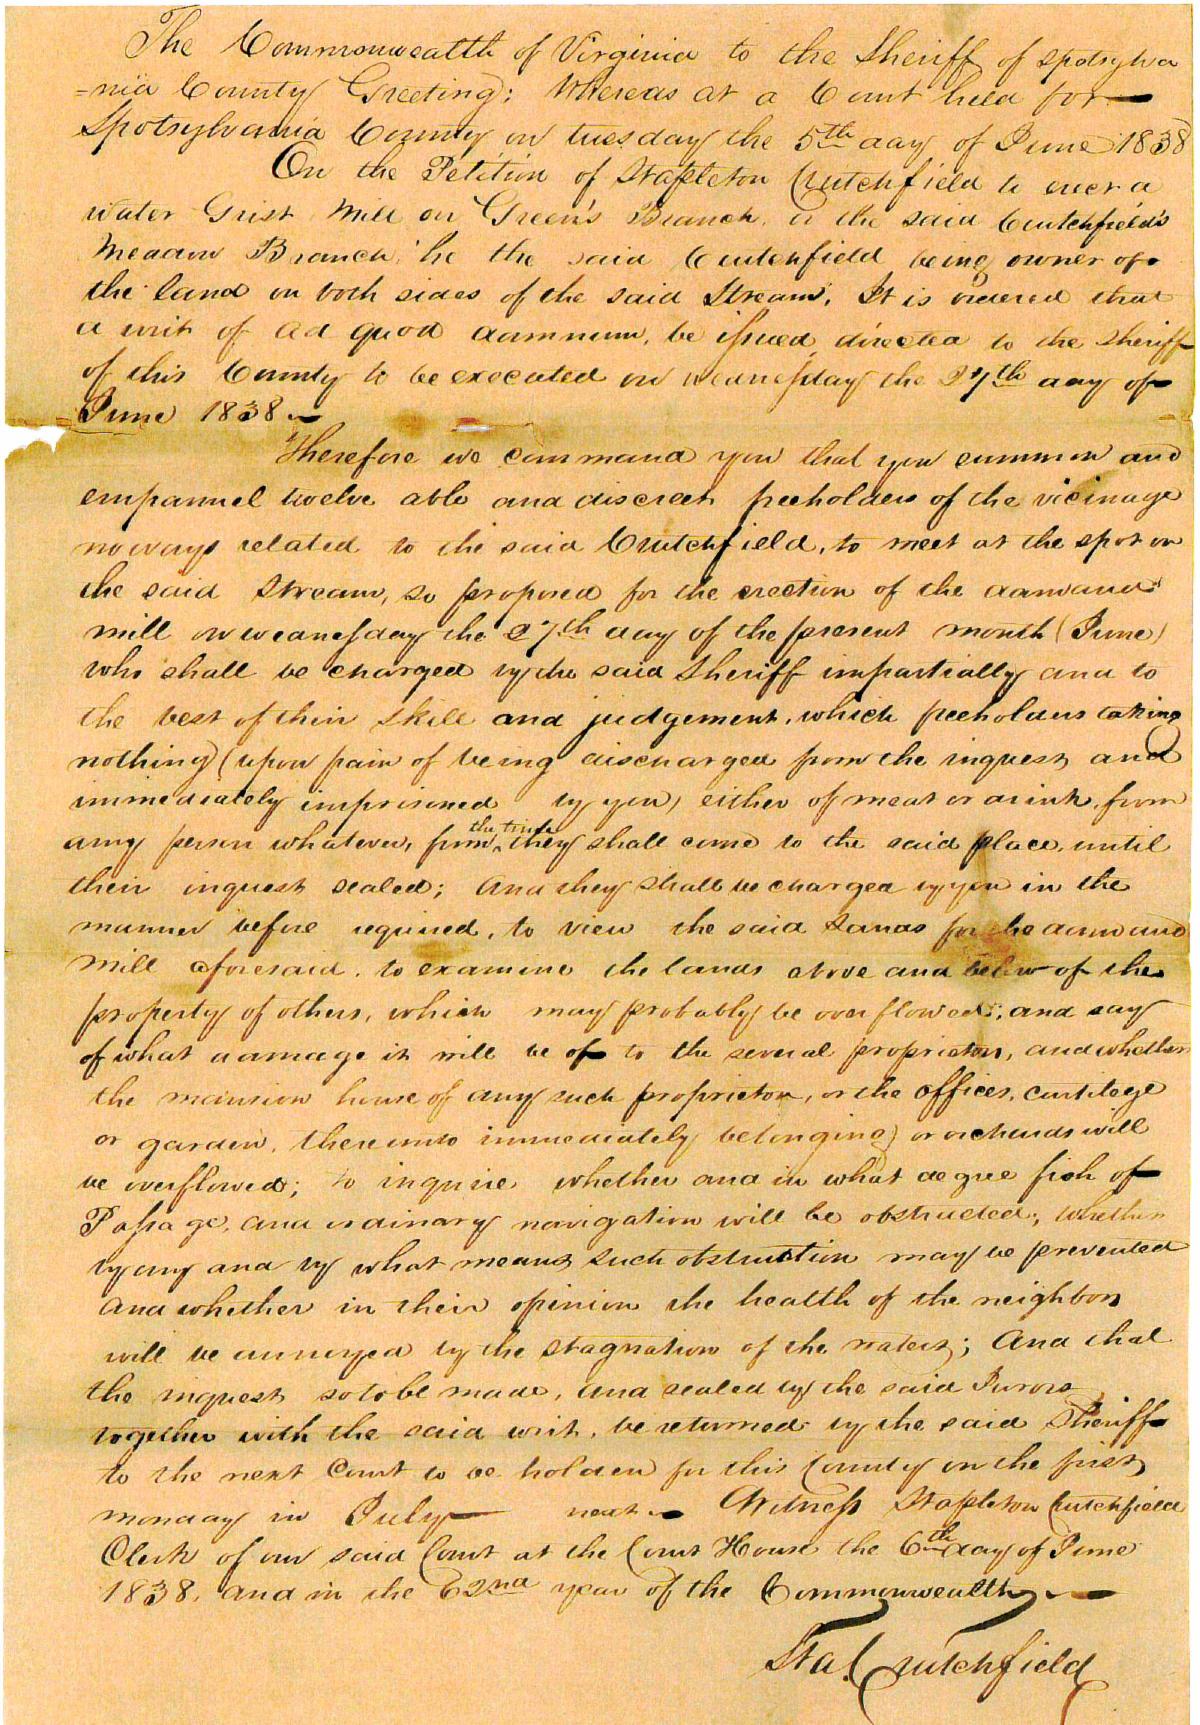 The Commonwealth of Virginia to the Sheriff of Spotsylva
=nia County Greeting: Whereas at a Court held for
Spotsylvania County on tuesday the 5th day of June 1838
On the Petition of Stapleton Crutchfield to erect a
Water Grist Mill on Green's Branch, or the said Crutchfield's
Meadow Branch, he the said Crutchfield being owner of
the land on both sides of the said Stream. It is ordered that
a writ of ad quod damnum, be issued, directed to the Sheriff
of this County to be executed on wednesday the 27th day of
June 1838.
Therefore we command you that you summon and
empannel twelve able and discreet freeholders of the vicinage
noways related to the said Crutchfield, to meet at the spot on
the said Stream, so proposed for the erection of the dam and
mill on wednesday the 27th day of the present month (June)
who shall be charged by the said Sheriff impartially and to
the best of their skill and judgement, which freeholders taking
nothing (upon pain of being discharged from the inquest and
immediately imprisoned by you) either of meat or drink, from
any person whatever, from the time they shall come to the said place, until
their inquest sealed; And they shall be charged by you in the
manner before required, to view the said Lands for the dam and
mill aforesaid, to examine the lands above and below of the
property of others, which may probably be overflowed; and say
of what damage it will be of to the several proprietors, and whether
the mansion house of any such proprietor, or the offices, curtilege
or garden, thereunto immediately belonging) or orchards will
be overflowed; to inquire whether and in what degree fish of
Passage, and ordinary navigation will be obstructed; whether
by any and by what means such obstruction may be prevented
and whether in their opinion the health of the neighbors
will be annoyed by the stagnation of the waters; And that
the inquest so to be made, and sealed by the said Jurors
together with the said writ, be returned by the said Sheriff
to the next Court to be holden for this County on the first
monday in July next Witness Stapleton Crutchfield
Clerk of our said Court at the Court House the 6th day of June
1838, and in the 62nd year of the Commonwealth
Sta. Crutchfield